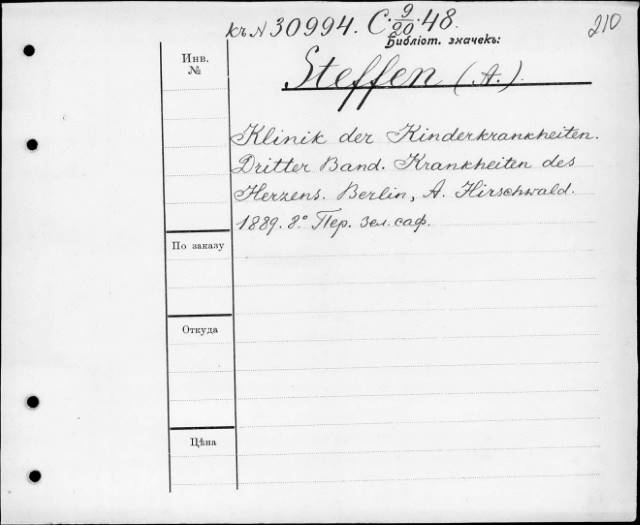 къ N 30994. C. 9/20. 48. 210
Библіот. значекъ:
Инв. №
Steffen (A.).
Klinik der Kinderkrankheiten.
Dritter Band. Krankheiten des
Herzens. Berlin, A. Hirschwald.
1889. 8° Пер. зел. саф.
По заказу
Откуда
Цѣна